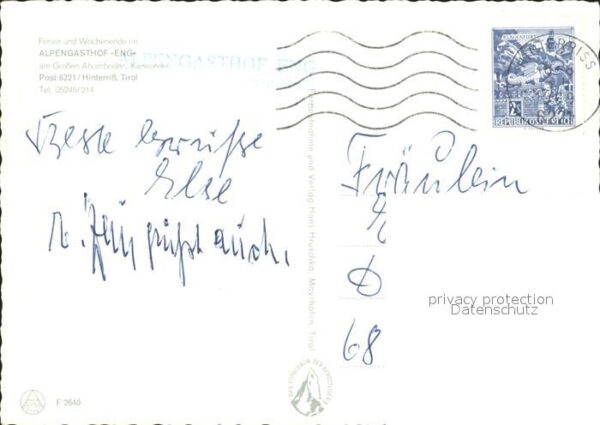 Ferien und Wochenende im
ALPENGASTHOF «ENG»
am Großen Ahornboden, Karwendel
Post 6221 / Hinterriß, Tirol
Tel. 05245/214
ALPENGASTHOF ENG
Beste Grüße
Else
grüßt auch.
Fräulein
D
68
privacy protection
Datenschutz
HINTERRISS
KLAGENFURT
2S
REPUBLIK ÖSTERREICH
und Verlag Hruschka, Mayrhofen, Tirol
F 2640